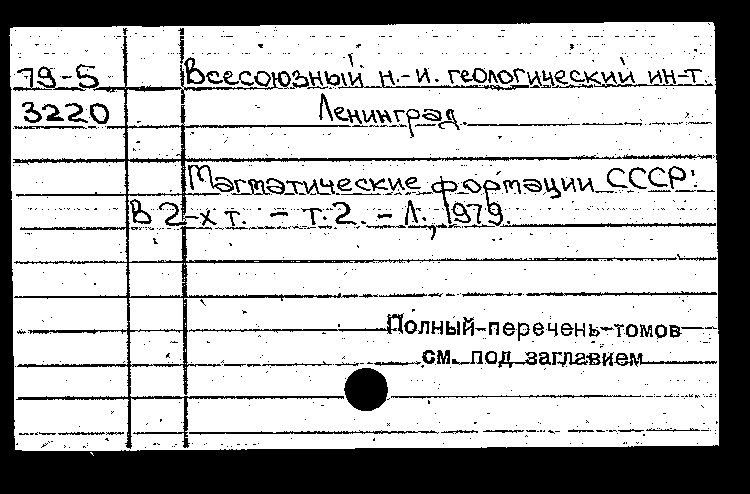 79-5 Всесоюзный н.-и. геологический ин-т.
3220 Ленинград.
Магматические формации СССР:
В 2-х т. - т. 2. - Л., 1979.
Полный перечень томов
см. под заглавием